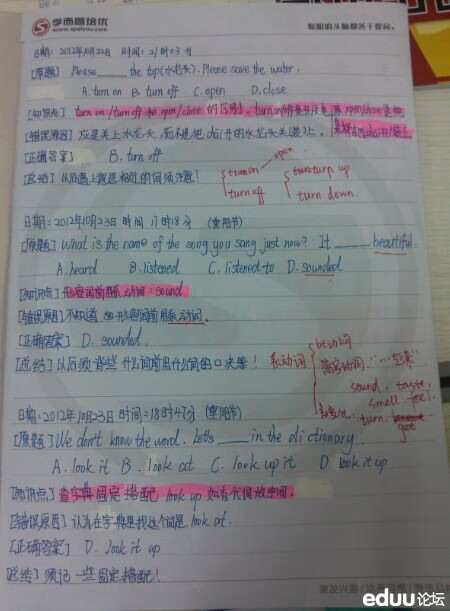 学而思培优
www.speiyou.com
聪明的头脑都善于提问。
日期: 2012年10月22日 时间: 21时03分
[原题] Please ____ the top(水龙头). Please save the water.
A. turn on B. turn off C. open D. close
[知识点] turn on/turn off 和 open/close 的区别。turn on/off是开关电源, open/close是把
某样东西打开/关上
[错误原因] 应是关上水龙头, 而不是把打开的水龙头关(装)上。
[正确答案] B. turn off
[总结] 以后遇上意思相近的词须注意!
turn on open
turn off
turn up
turn down
日期: 2012年10月23日 时间 17时18分 (重阳节)
[原题] What is the name of the song you sang just now? It ____ beautiful.
A. heard B. listened C. listened to D. sounded
[知识点] 形容词前用系动词: sound
[错误原因] 不知道 形容词前用系动词。
[正确答案] D. sounded
[总结] 以后须背些什么词前用什么词的口决!
系动词
be动词
感官动词 "…起来"
sound, taste,
smell feel.
turn,
get
日期: 2012年10月23日 时间: 18时47分 (重阳节)
[原题] We don't know the word. Let's ____ in the dictionary
A. look it B. look at C. look up it D look it up
[知识点] 查字典固定搭配 look up 如有代词放中间。
[错误原因] 认为在字典里找这个词是 look at.
[正确答案] D. look it up
[总结] 须记一些固定搭配!
激发兴趣
eduu论坛